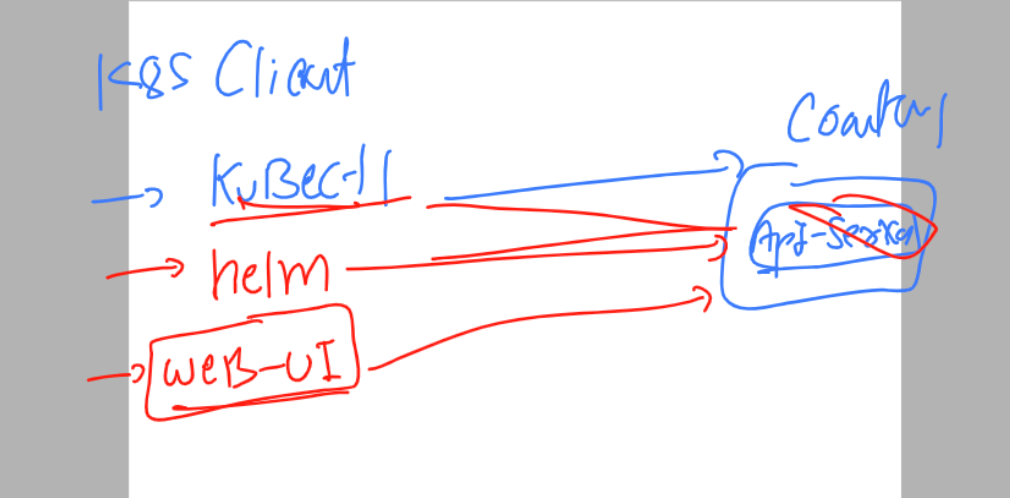 K8S Client
KuBectl
helm
WeB-UI
ApI-Server